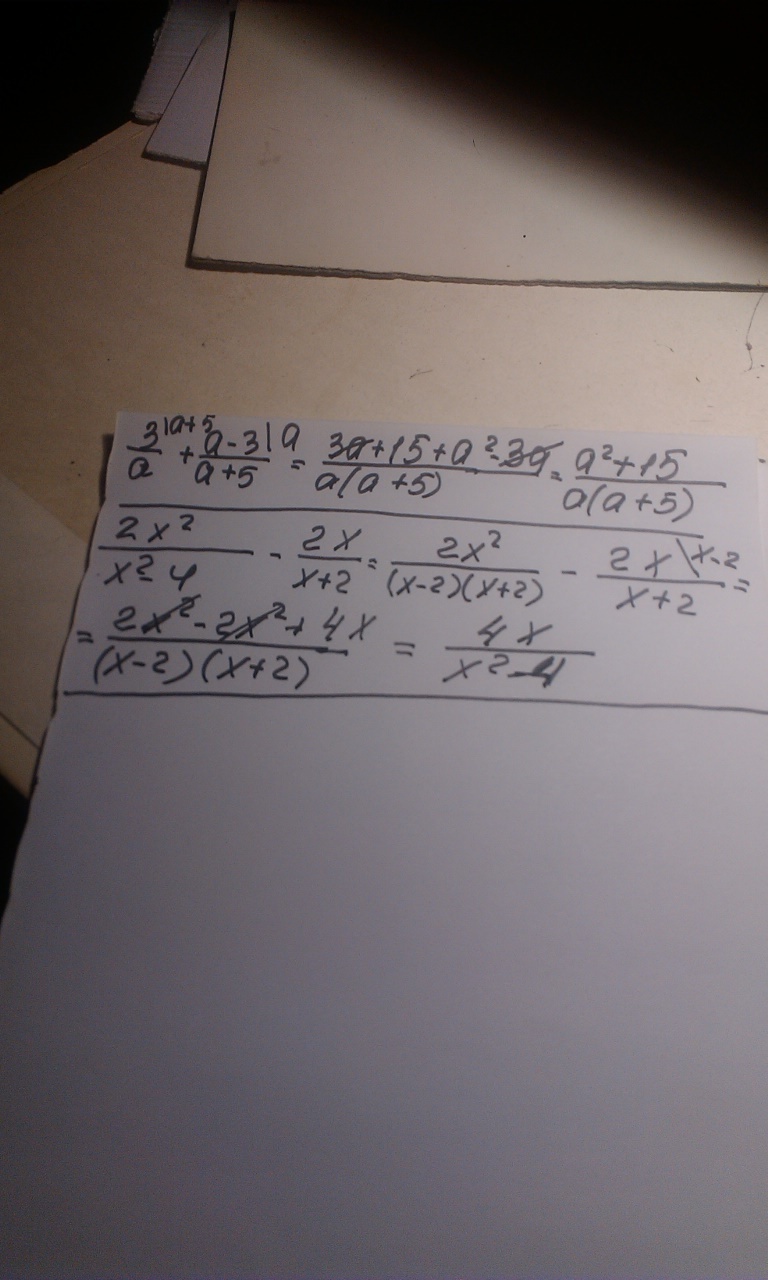 3|a+5/a + a-3|a/a+5 = 3a+15+a²-3a/a(a+5) = a²+15/a(a+5)
2x²/x²-4 - 2x/x+2 = 2x²/(x-2)(x+2) - 2x\x-2/x+2 =
= 2x²-2x²+4x/(x-2)(x+2) = 4x/x²-4